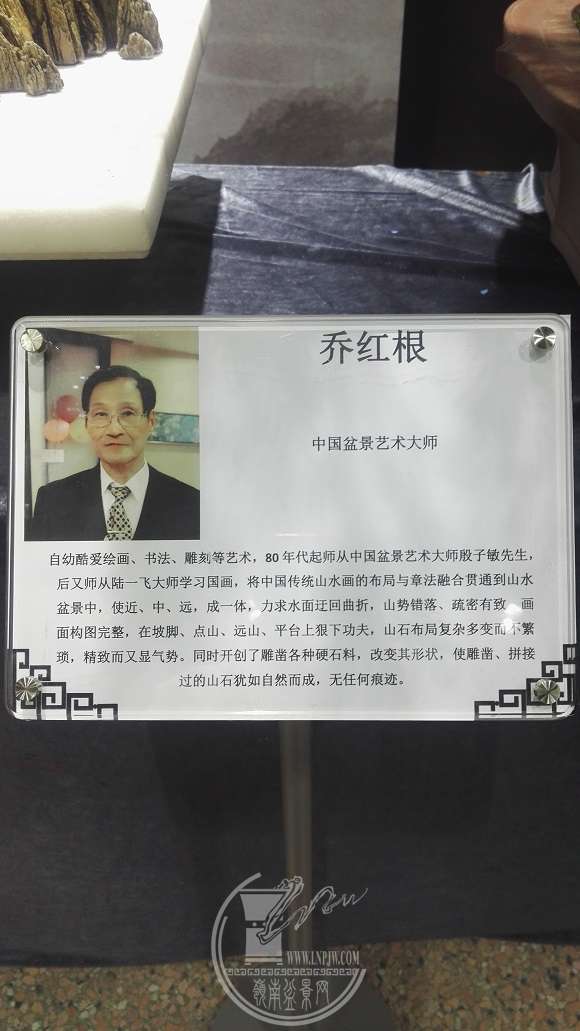 乔红根
中国盆景艺术大师
自幼酷爱绘画、书法、雕刻等艺术，80年代起师从中国盆景艺术大师殷子敏先生，
后又师从陆一飞大师学习国画，将中国传统山水画的布局与章法融合贯通到山水
盆景中，使近、中、远，成一体，力求水面迂回曲折，山势错落、疏密有致。画
面构图完整，在坡脚、点山、远山、平台上狠下功夫，山石布局复杂多变而不繁
琐，精致而又显气势。同时开创了雕凿各种硬石料，改变其形状，使雕凿、拼接
过的山石犹如自然而成，无任何痕迹。
WWW.LNPJW.COM
嶺南盆景网